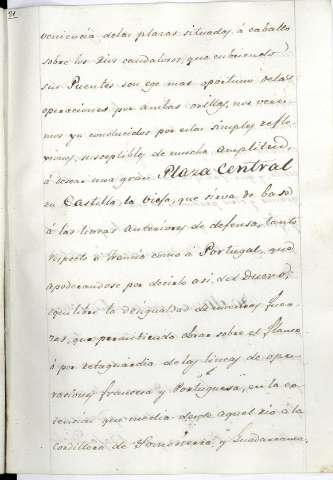 21
veniencia de las plazas situadas á caballo
sobre los rios caudalosos, que cubriendo
sus Puentes son ege mas oportuno de las
operaciones por ambas orillas, nos vere-
mos ya conducidos por estas simples refle-
xiones, susceptibles de mucha amplitud,
á desear una gran Plaza Central
en Castilla la Vieja, que sirva de base
á las lineas anteriores de defensa, tanto
respecto á Francia como á Portugal, que
apoderandose por decirlo asi, del Duero,
equilibre la desigualdad de nuestras fuer-
zas, que permitiendo obrar sobre el flanco
ó por retaguardia de las lineas de ope-
raciones francesa y Portuguesa, en la es-
tension que media desde aquel rio á la
cordillera de Somosierra y Guadarrama,